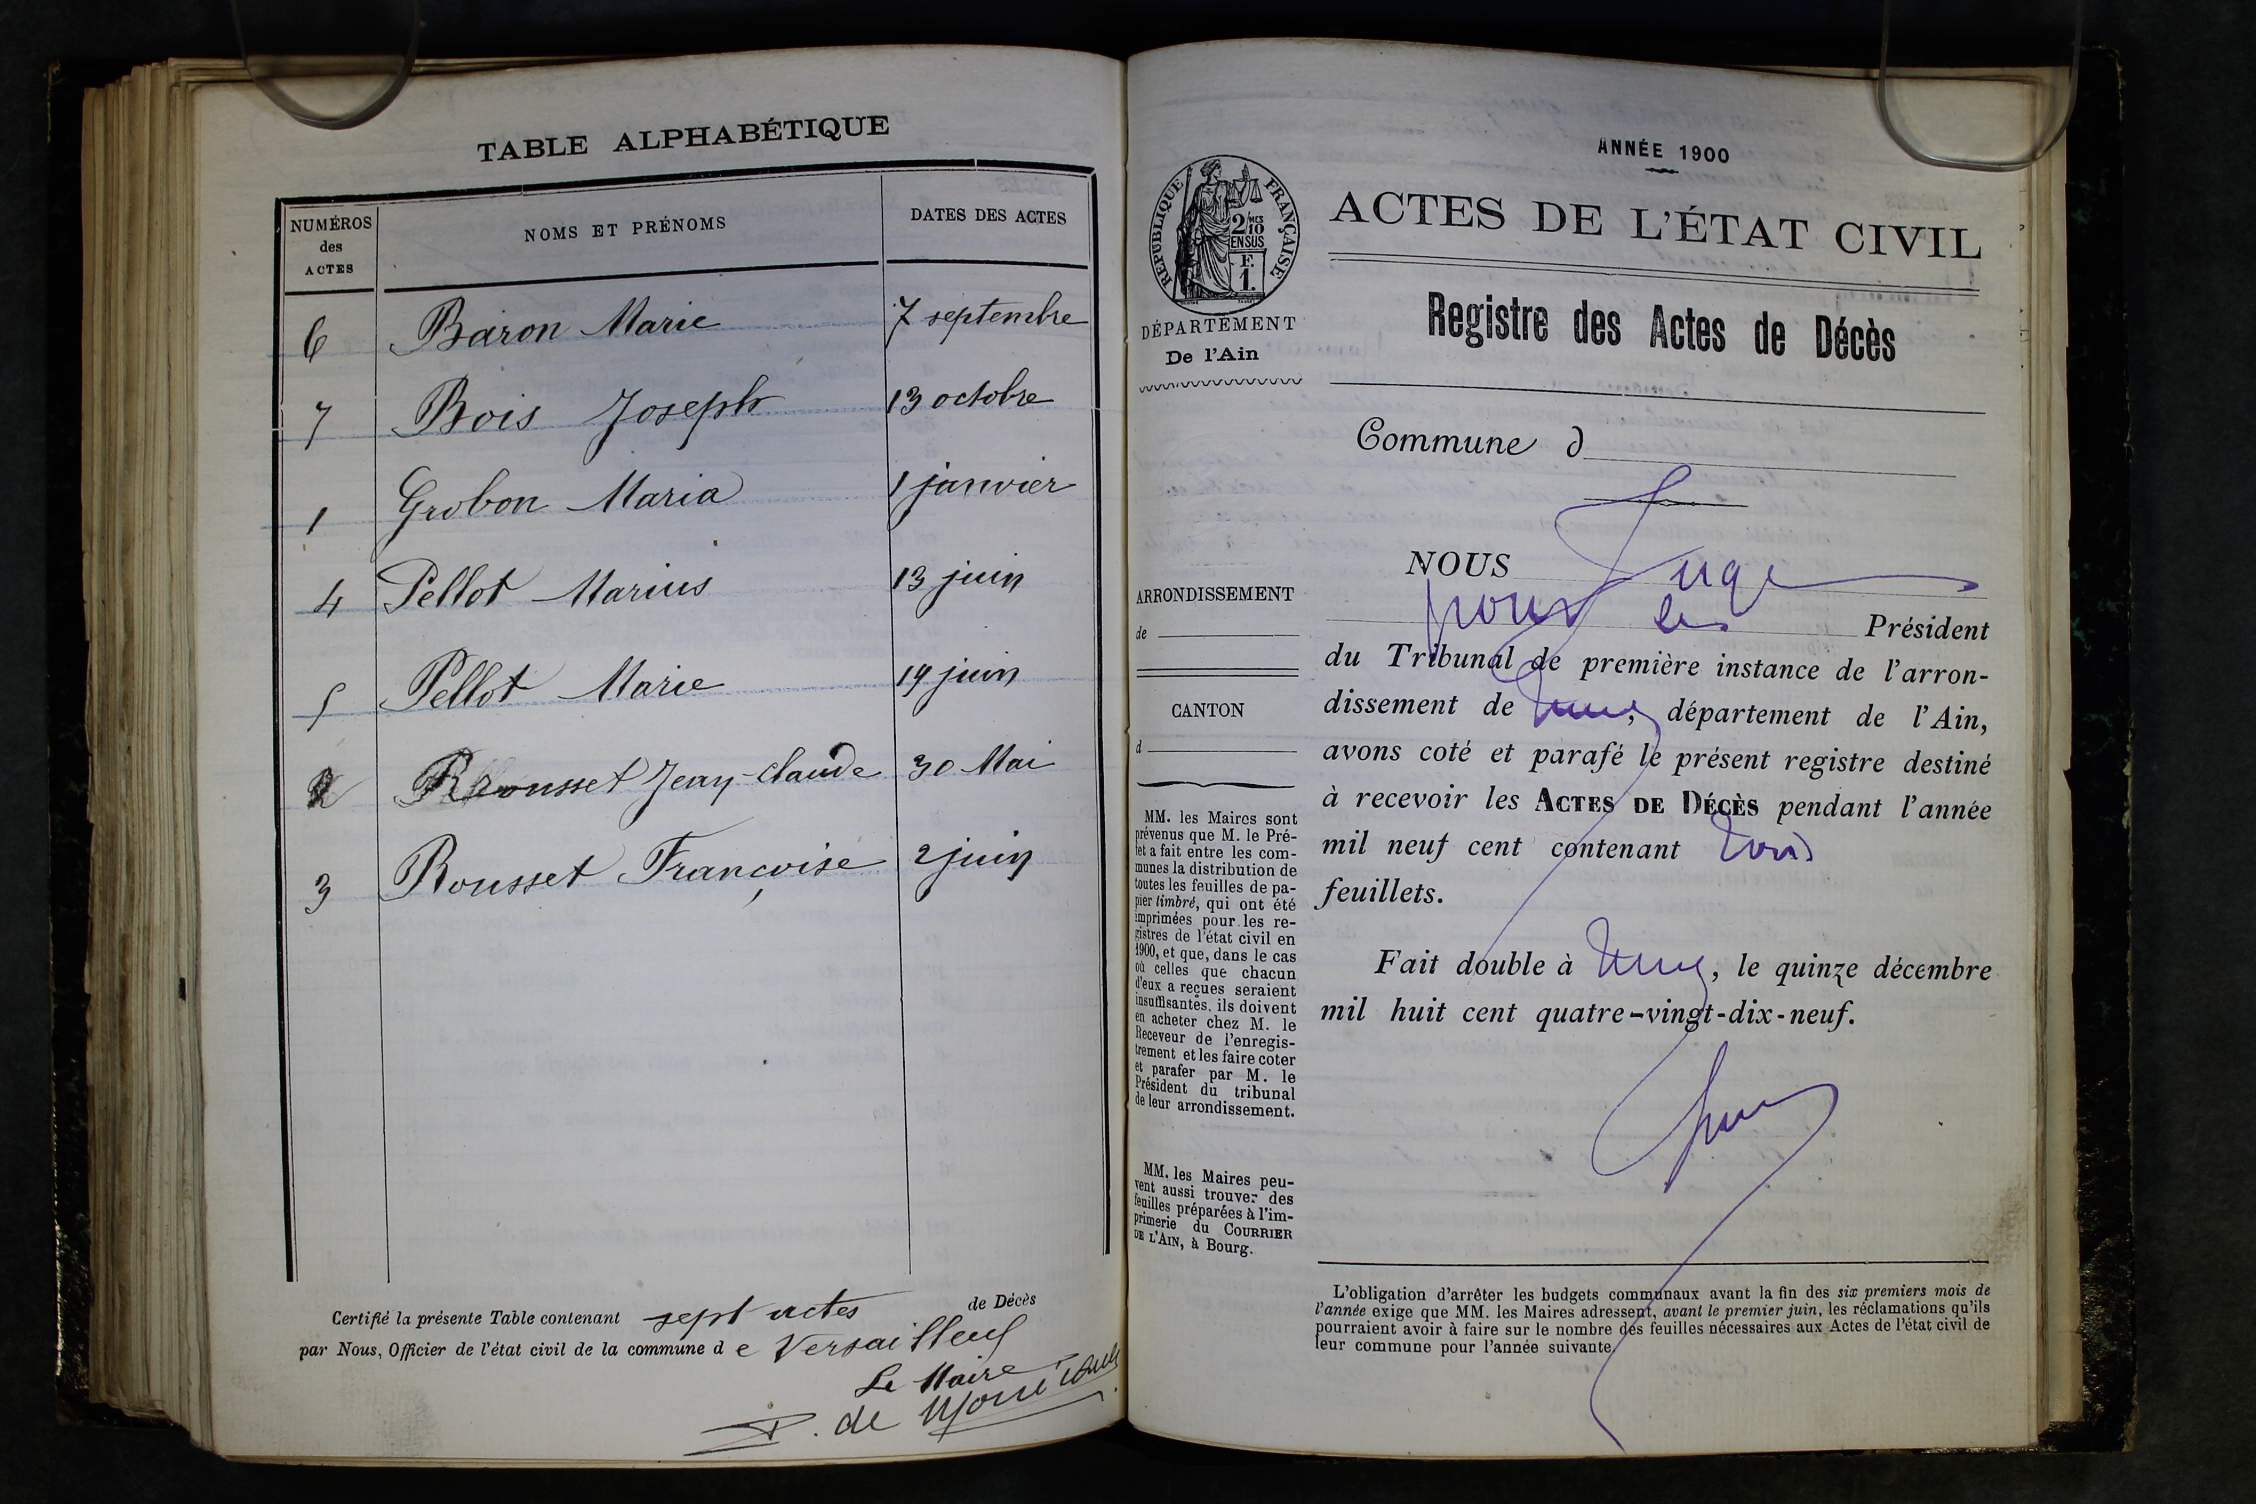 TABLE ALPHABÉTIQUE
NUMÉROS
des
ACTES
NOMS ET PRÉNOMS
DATES DES ACTES
6 Baron Marie 7 septembre
7 Bois Joseph 13 octobre
1 Grobon Maria 1 janvier
4 Pellot Marius 13 juin
5 Pellot Marie 19 juin
2 Rousset Jean-Claude 30 Mai
3 Rousset Françoise 2 juin
Certifié la présente Table contenant sept actes de Décès
par Nous, Officier de l'état civil de la commune de Versailleux
Le Maire
de
ANNÉE 1900
RÉPUBLIQUE FRANÇAISE
2/10
EN SUS
F.
1.
DÉPARTEMENT
De l'Ain
ACTES DE L'ÉTAT CIVIL
Registre des Actes de Décès
Commune d
ARRONDISSEMENT
de
CANTON
d
MM. les Maires sont
prévenus que M. le Pré-
fet a fait entre les com-
munes la distribution de
toutes les feuilles de pa-
pier timbré, qui ont été
imprimées pour les re-
gistres de l'état civil en
1900, et que, dans le cas
où celles que chacun
d'eux a reçues seraient
insuffisantes, ils doivent
en acheter chez M. le
Receveur de l'enregis-
trement et les faire coter
et parafer par M. le
Président du tribunal
de leur arrondissement.
MM. les Maires peu-
vent aussi trouver des
feuilles préparées à l'im-
primerie du COURRIER
DE L'AIN, à Bourg.
NOUS Juge
pour le Président
du Tribunal de première instance de l'arron-
dissement de , département de l'Ain,
avons coté et parafé le présent registre destiné
à recevoir les ACTES DE DÉCÈS pendant l'année
mil neuf cent contenant trois
feuillets.
Fait double à , le quinze décembre
mil huit cent quatre-vingt-dix-neuf.
L'obligation d'arrêter les budgets communaux avant la fin des six premiers mois de
l'année exige que MM. les Maires adressent, avant le premier juin, les réclamations qu'ils
pourraient avoir à faire sur le nombre des feuilles nécessaires aux Actes de l'état civil de
leur commune pour l'année suivante.